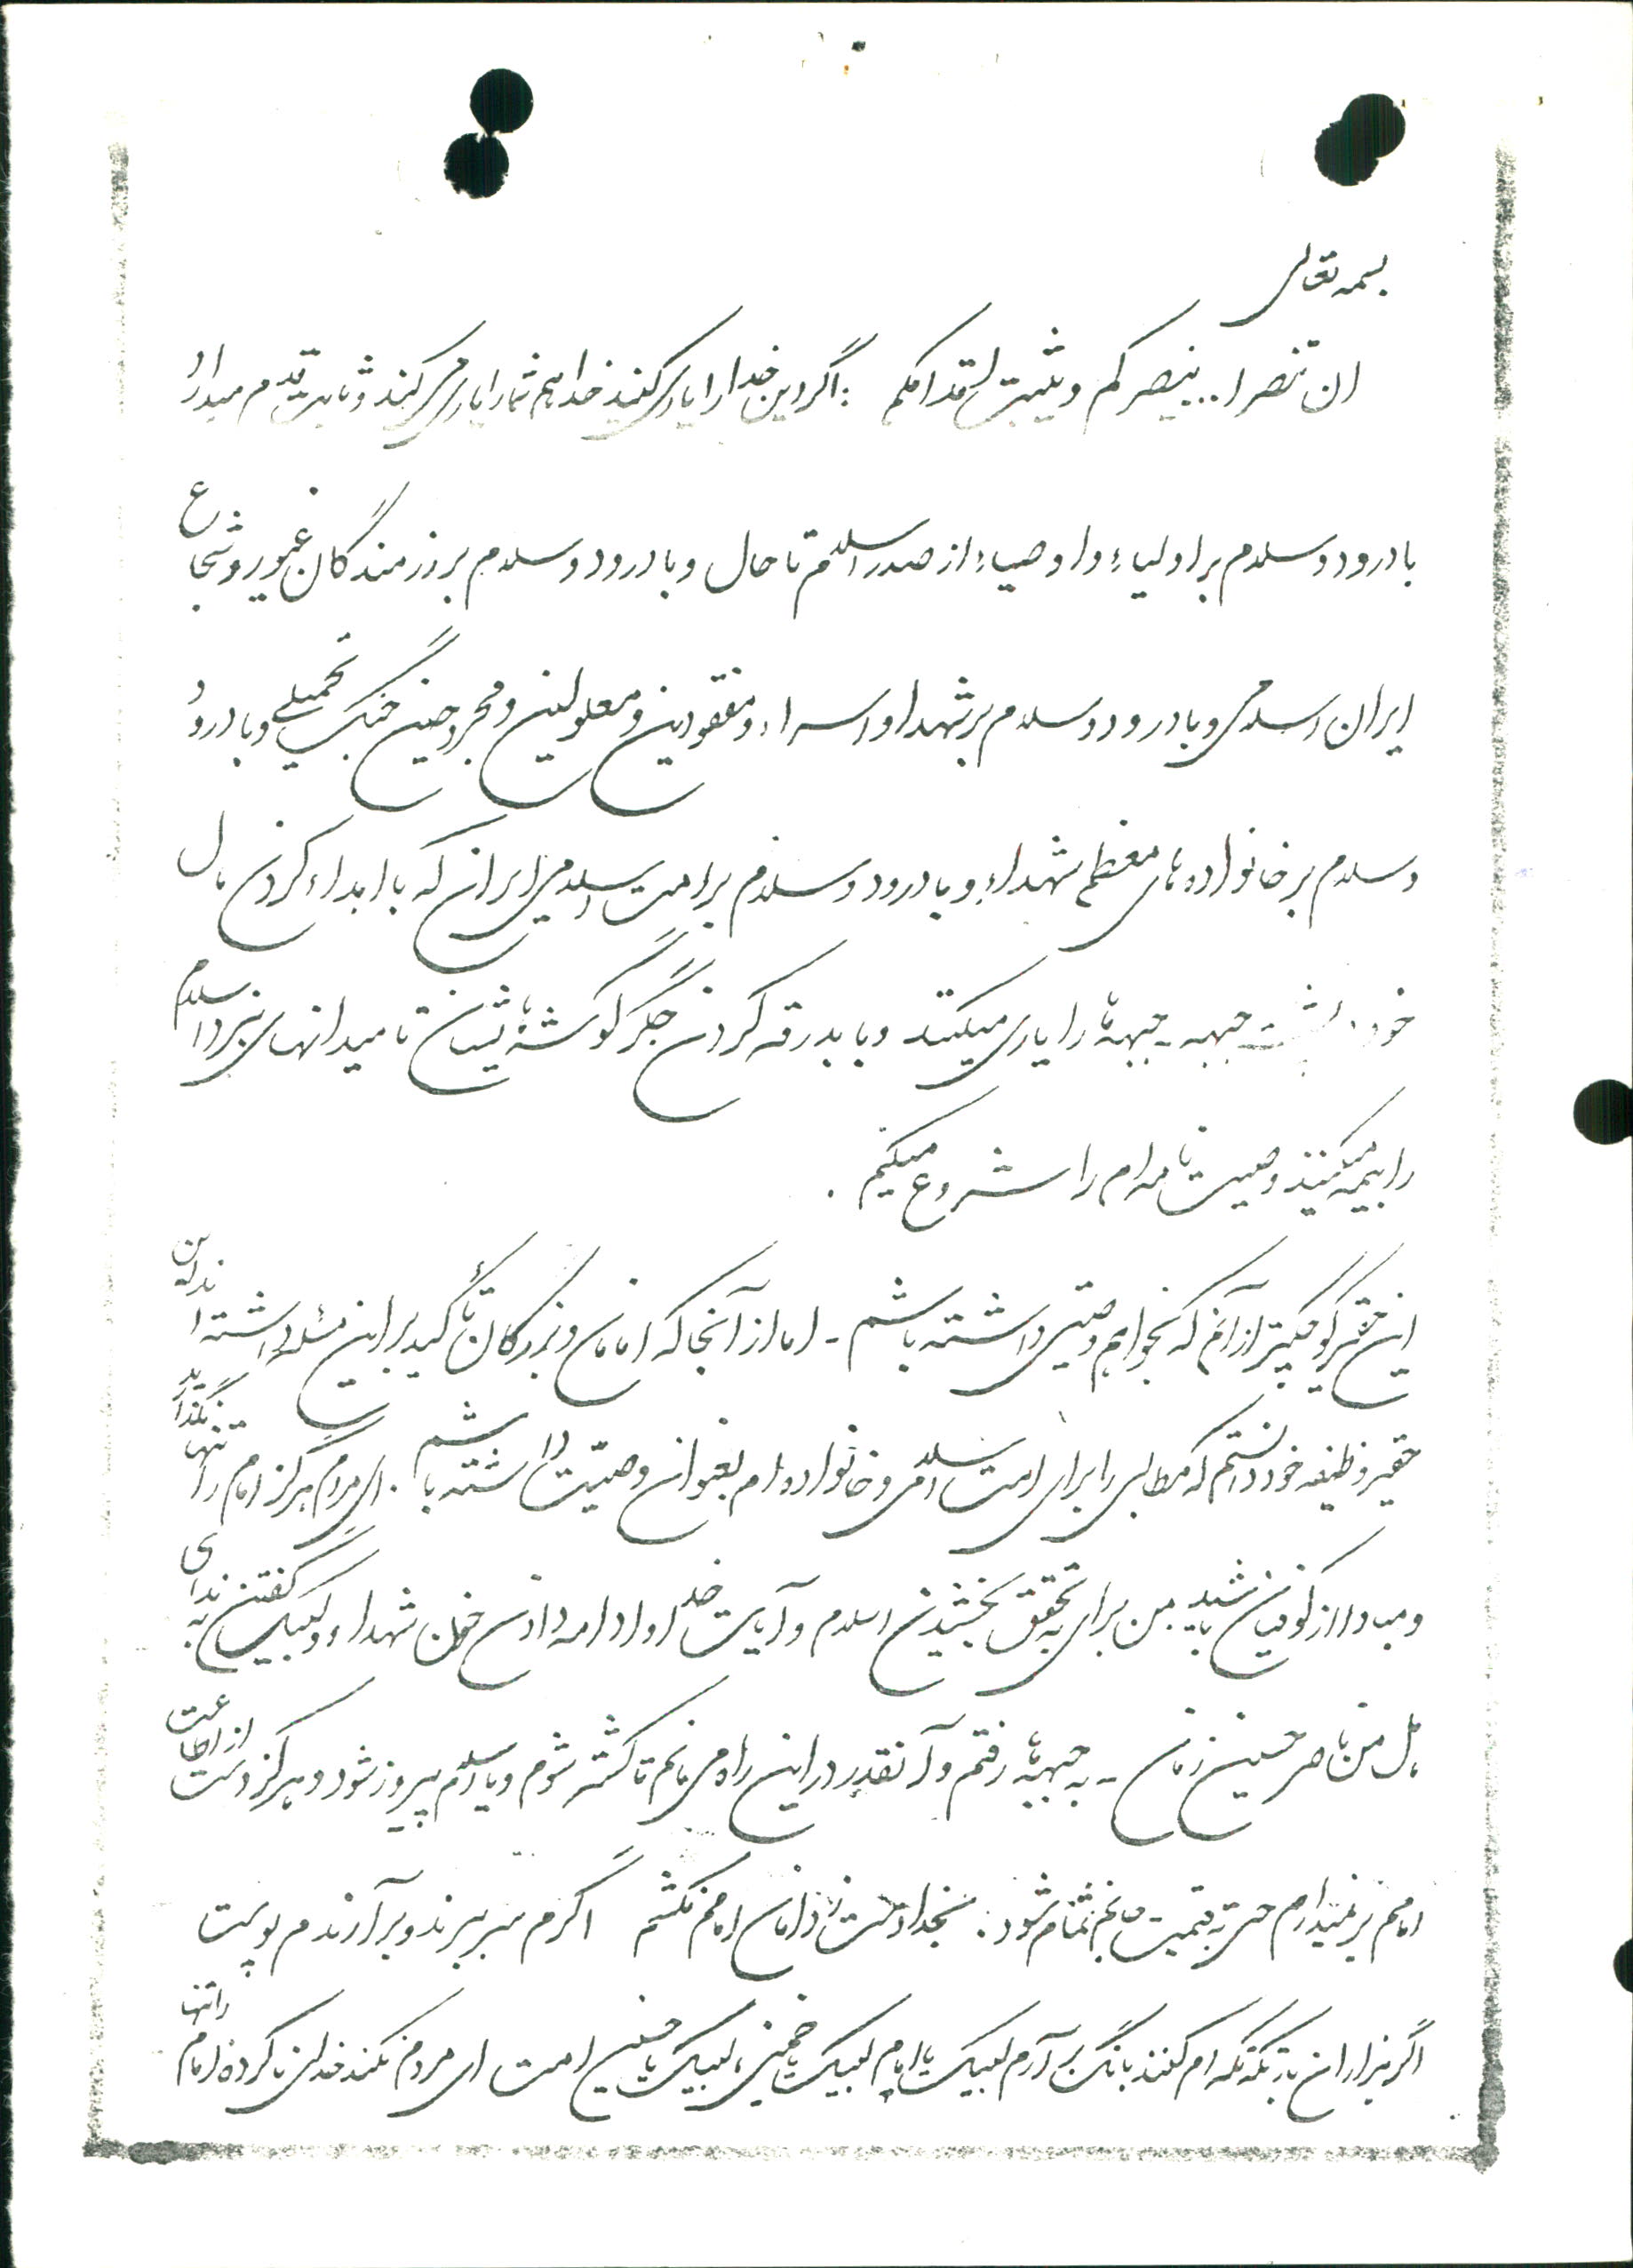 بسمه تعالی
ان تنصرا.. ینصرکم و یثبت اقدامکم : اگر دین خدا را یاری کنید خدا هم شما را یاری می کند و ثابت قدم میدارد
با درود و سلام بر اولیاء و اوصیاء از صدر اسلام تا حال و با درود و سلام بر رزمندگان غیور و شجاع
ایران اسلامی و با درود و سلام بر شهدا و اسراء و مفقودین و معلولین و مجروحین جنگ تحمیلی و با درود
و سلام بر خانواده های معظم شهداء و با درود و سلام بر امت اسلامی ایران که با اهداء کردن مال
خود پشت جبهه - جبهه ها را یاری میکنند و با بدرقه کردن جگر گوشه هایشان تا میدانهای نبرد اسلام
را بیمه میکنند وصیت نامه ام را شروع میکنم .
این حقیر کوچکتر از آنم که بخواهم وصیتی داشته باشم - اما از آنجا که امامان و بزرگان تأکید بر این مسئله داشته اند این
حقیر وظیفه خود دانستم که مطالبی را برای امت اسلامی و خانواده ام بعنوان وصیت داشته باشم . ای مردم هرگز امام را تنها نگذارید
و مبادا از کوفیان باشید من برای به تحقق بخشیدن اسلام و آیات خدا و ادامه دادن خون شهداء و لبیک گفتن به ندای
هل من ناصر حسین زمان - به جبهه ها رفتم و آنقدر در این راه می مانم تا کشته شوم و یا اسلام پیروز شود و هرگز دست از اطاعت
امامم برنمیدارم حتی به قیمت جانم تمام شود . بخدا دست از دامان امامم نکشم اگرم سر ببرند و برآرندم پوست
اگر هزاران بار تکه تکه ام کنند بانگ برآرم لبیک یا امام لبیک یا خمینی لبیک یا حسین امت ای مردم نکند خدای ناکرده امام را تنها